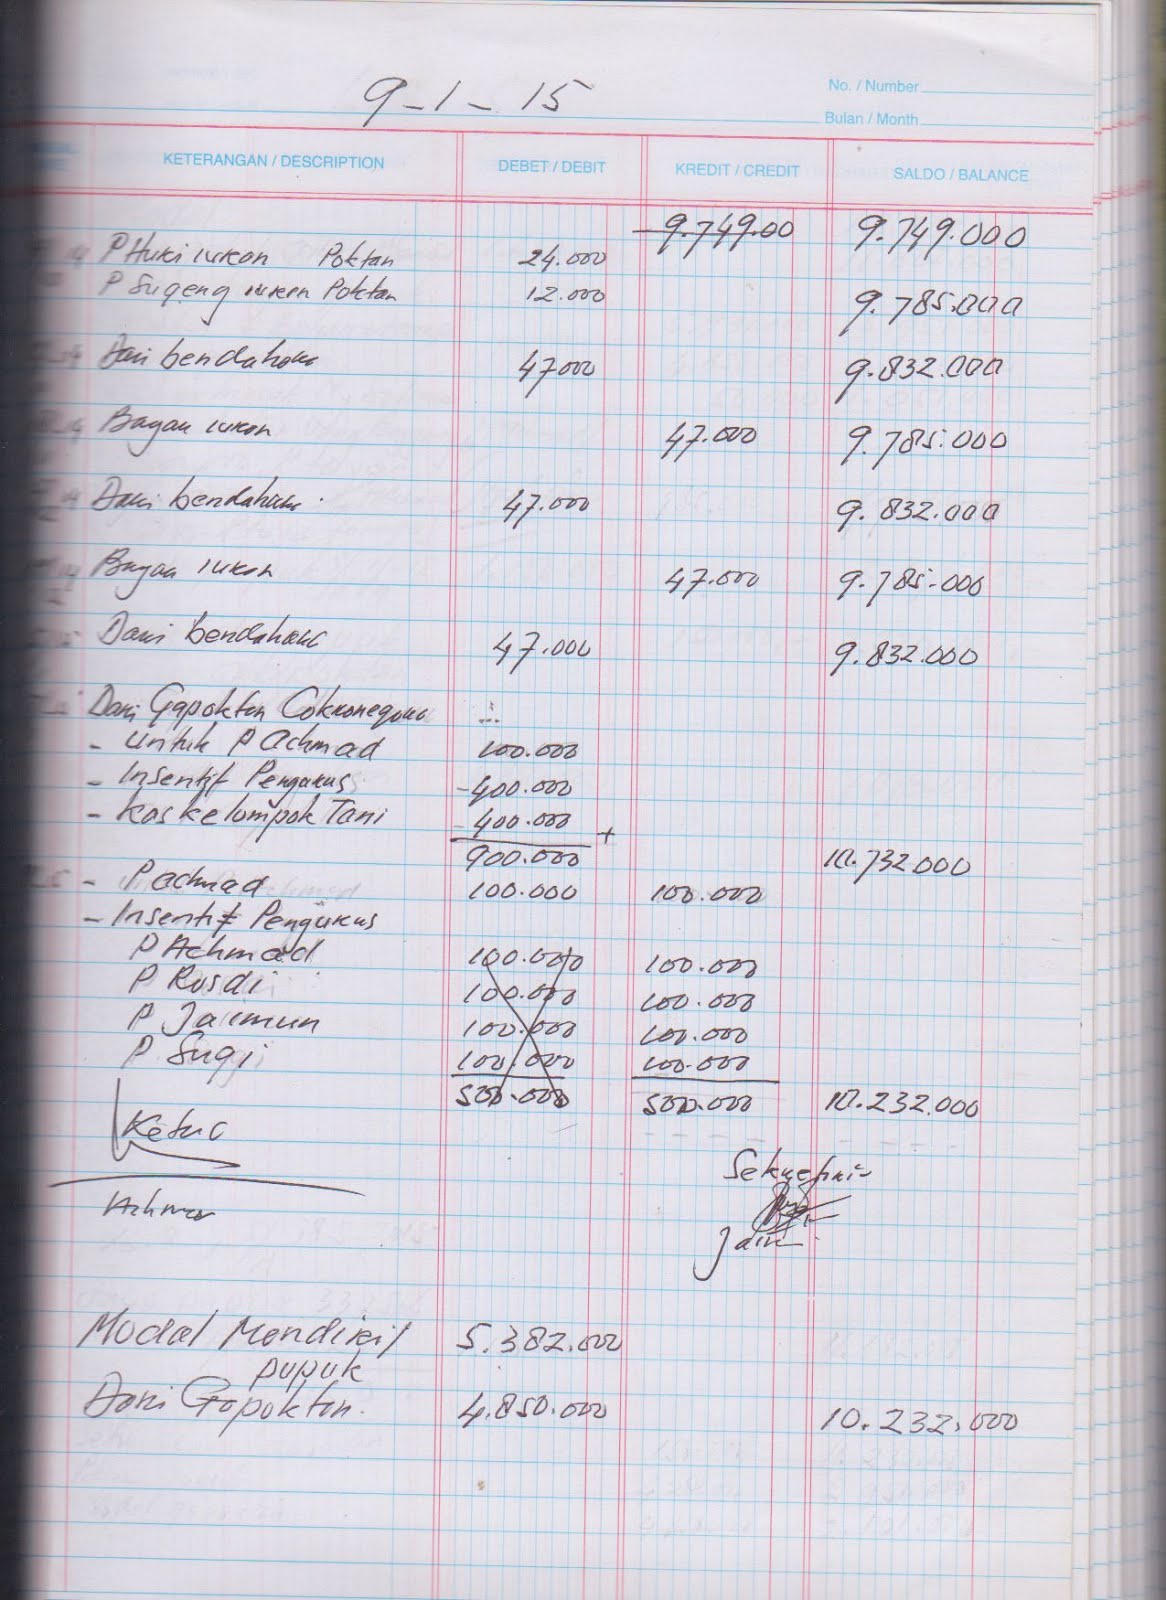 9-1-15
No. / Number
Bulan / Month
KETERANGAN / DESCRIPTION DEBET / DEBIT KREDIT / CREDIT SALDO / BALANCE
9.749.00 9.749.000
P Huki iuran Poktan 24.000
P Sugeng iuran Poktan 12.000 9.785.000
Dari bendahara 47000 9.832.000
Bayar iuran 47.000 9.785.000
Dari bendahara 47.000 9.832.000
Bayar iuran 47.000 9.785.000
Dari bendahara 47.000 9.832.000
Dari Gapoktan Cokronegoro
- Untuk P Achmad 100.000
- Insentif Pengurus 400.000
- Kas kelompok Tani 400.000 +
900.000 10.732.000
- P achmad 100.000 100.000
- Insentif Pengurus
P Achmad 100.000 100.000
P Rusdi 100.000 100.000
P Jaimun 100.000 100.000
P Sugi 100.000 100.000
500.000 500.000 10.232.000
Ketua
Sekretari
Achmad
Jaim
Modal Mandiri/ 5.382.000
pupuk
Dari Gapoktan. 4.850.000 10.232.000